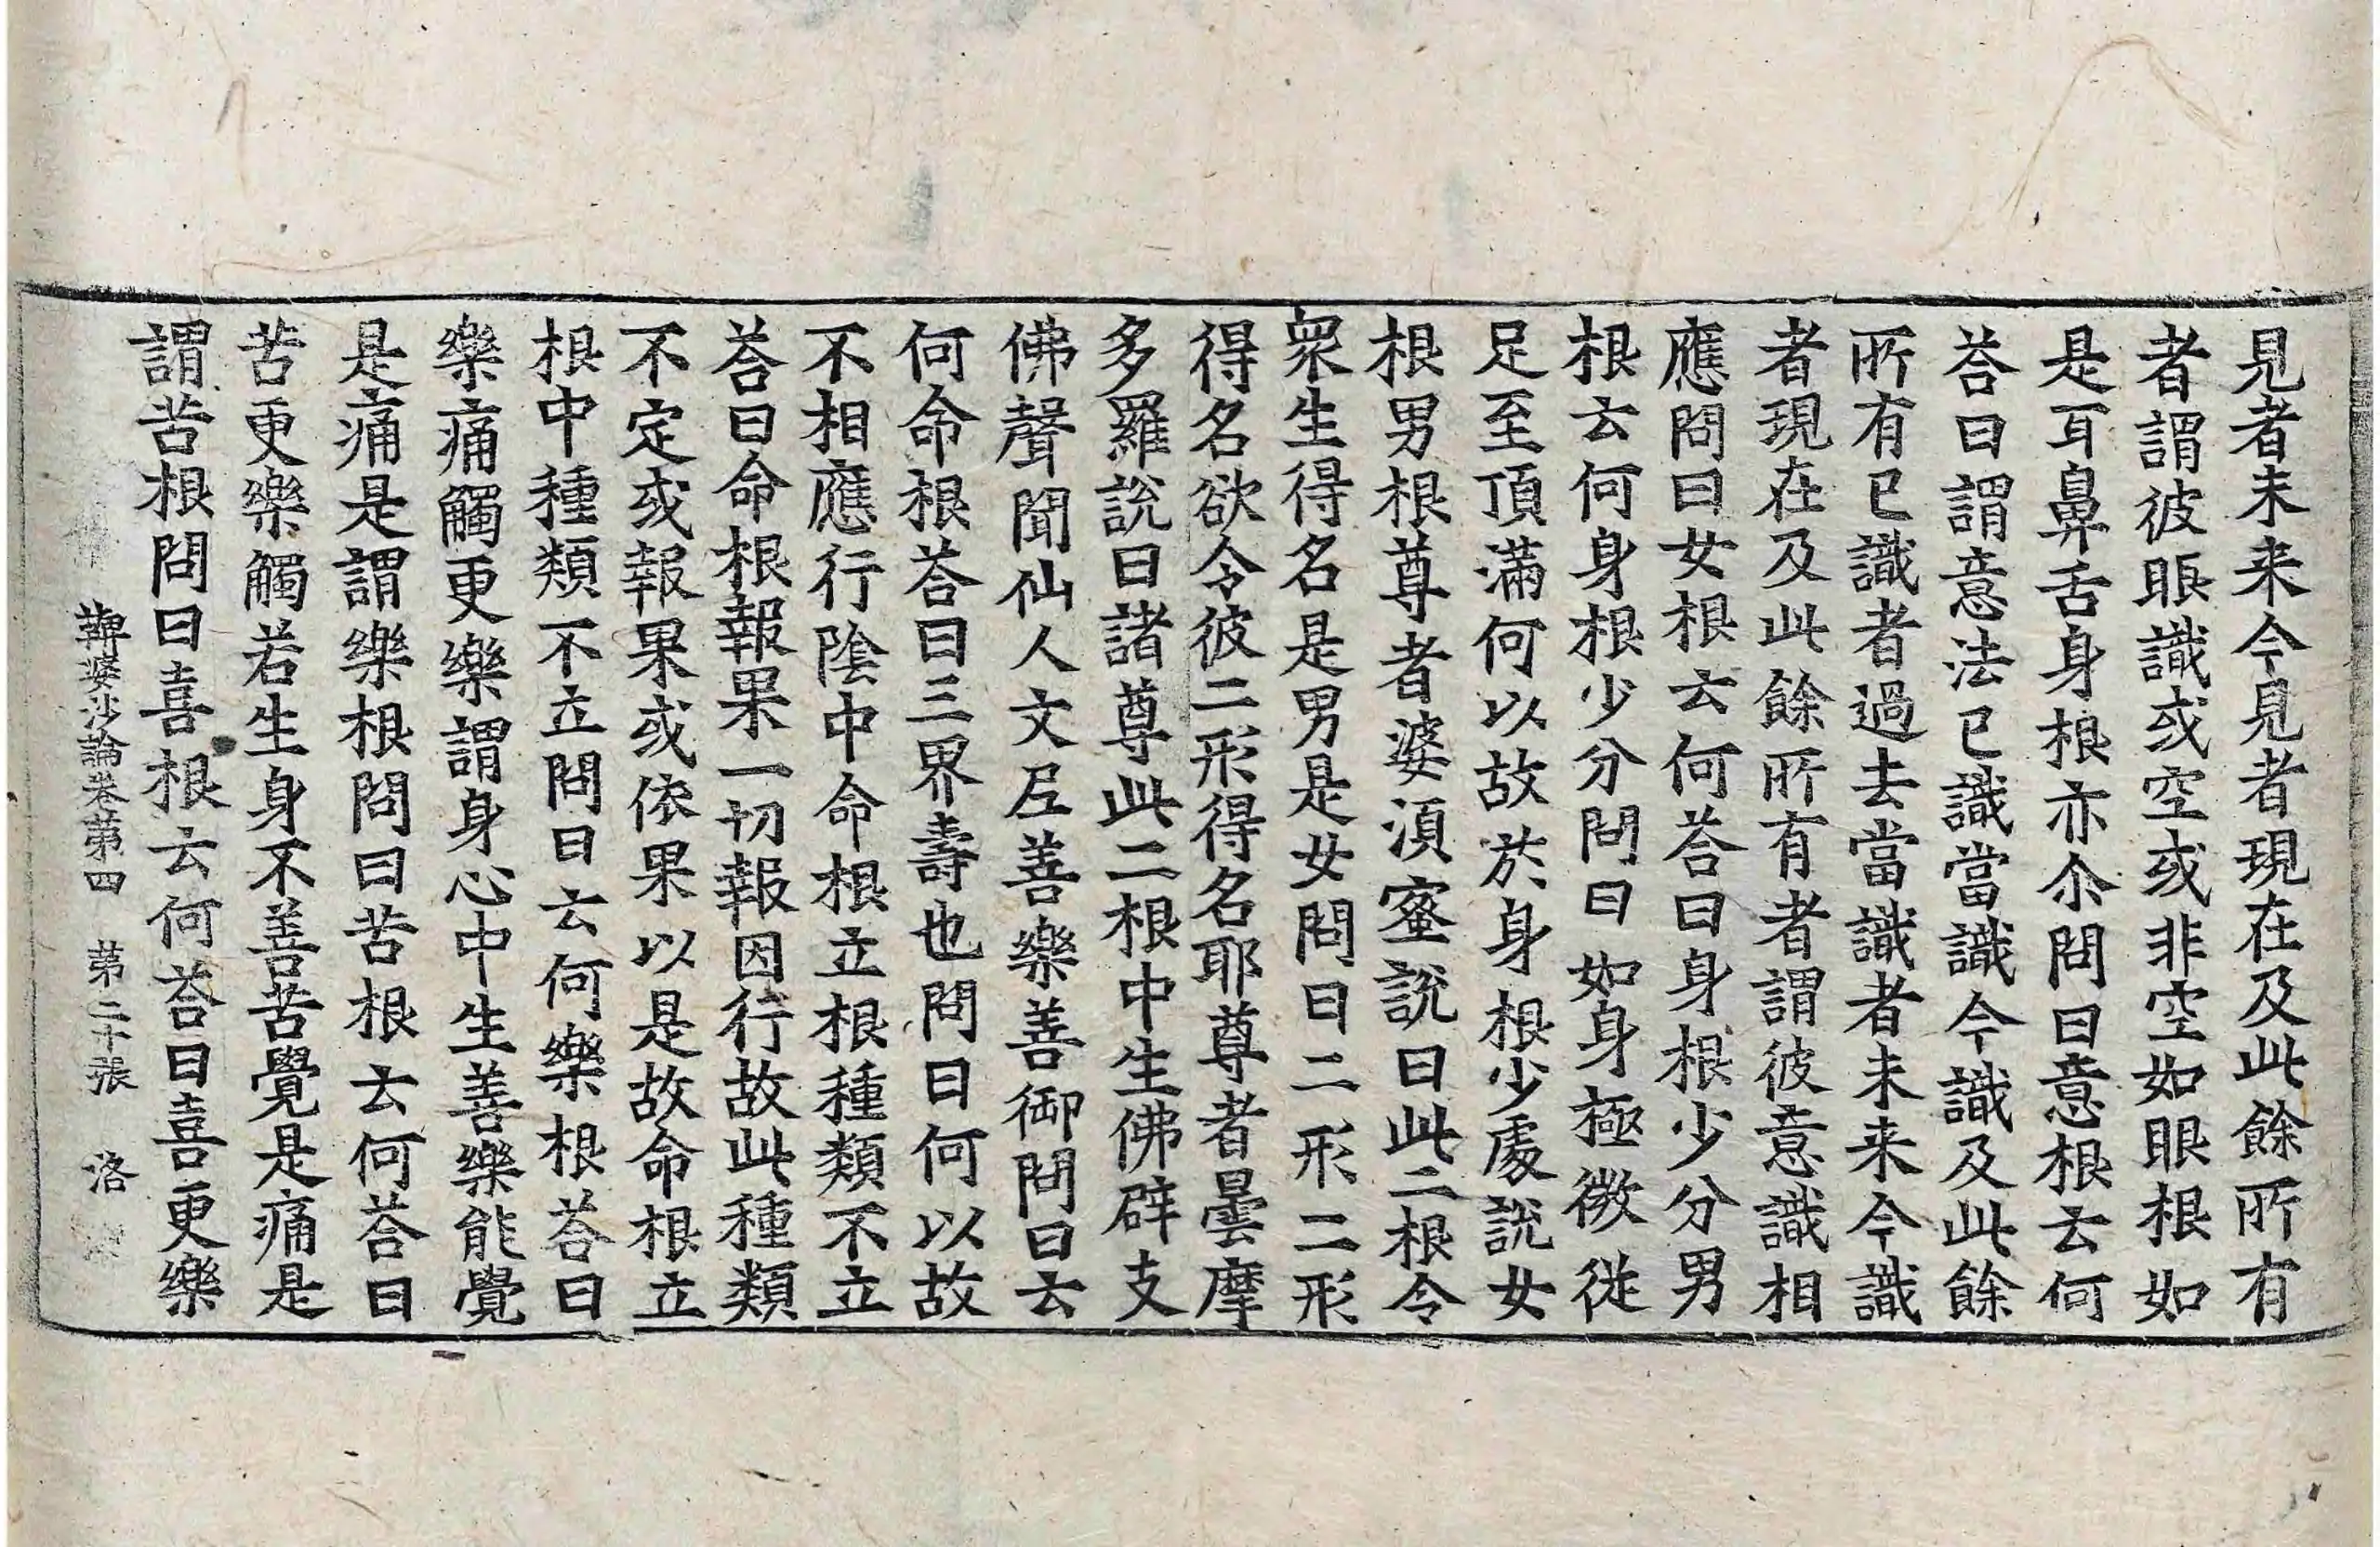 見者未来今見者現在及此餘所有
者謂彼眼識或空或非空如眼根如
是耳鼻舌身根亦尒問曰意根云何
荅曰謂意法已識當識今識及此餘
所有已識者過去當識者未来今識
者現在及此餘所有者謂彼意識相
應問曰女根云何荅曰身根少分男
根云何身根少分問曰如身極微従
足至頂滿何以故於身根少處說女
根男根尊者婆湏蜜說曰此二根令
衆生得名是男是女問曰二形二形
得名欲令彼二形得名耶尊者曇摩
多羅說曰諸尊此二根中生佛辟支
佛聲聞仙人文𡰱善樂善御問曰云
何命根荅曰三界壽也問曰何以故
不相應行陰中命根立根種類不立
荅曰命根報果一切報因行故此種類
不定或報果或依果以是故命根立
根中種類不立問曰云何樂根荅曰
樂痛觸更樂謂身心中生善樂能覺
是痛是謂樂根問曰苦根云何荅曰
苦更樂觸若生身不善苦覺是痛是
謂苦根問曰喜根云何荅曰喜更樂
鞞婆沙論卷第四 第二十張 洛